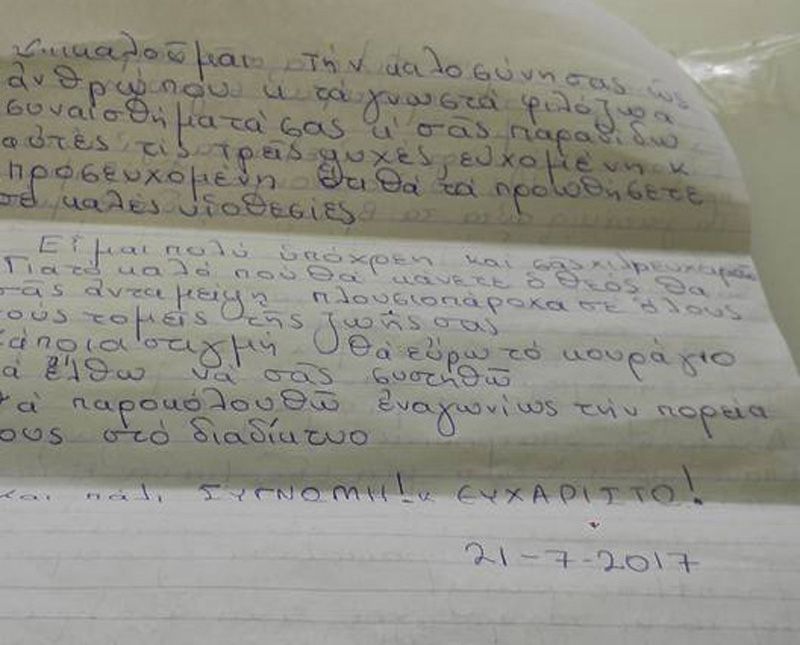 επικαλοῦμαι τήν καλοσύνη σας ὡς
ἀνθρώπου κ τά γνωστά φιλόζωα
συναισθήματά σας κ' σᾶς παραδίδω
αὐτές τίς τρεῖς ψυχές, εὐχομένη κ
προσευχομένη ὅτι θά τά προωθήσετε
σέ καλές υἱοθεσίες
Εἶμαι πολύ ὑπόχρεη και σας χιλιοευχαριστώ
Γιατο καλό πού θα κάνετε ὁ θεός θα
σᾶς ἀνταμείψη πλουσιοπάροχα σε ὅλους
τούς τομεῖς τῆς ζωῆς σας
κάποια στιγμή θά εὕρω τό κουράγιο
νά ἔλθω νά σᾶς συστηθῶ
θά παρακολουθῶ ἐναγωνίως τήν πορεία
τους στό διαδίκτυο
και πάλι ΣΥΓΝΩΜΗ! κ ΕΥΧΑΡΙΣΤΟ!
21-7-2017